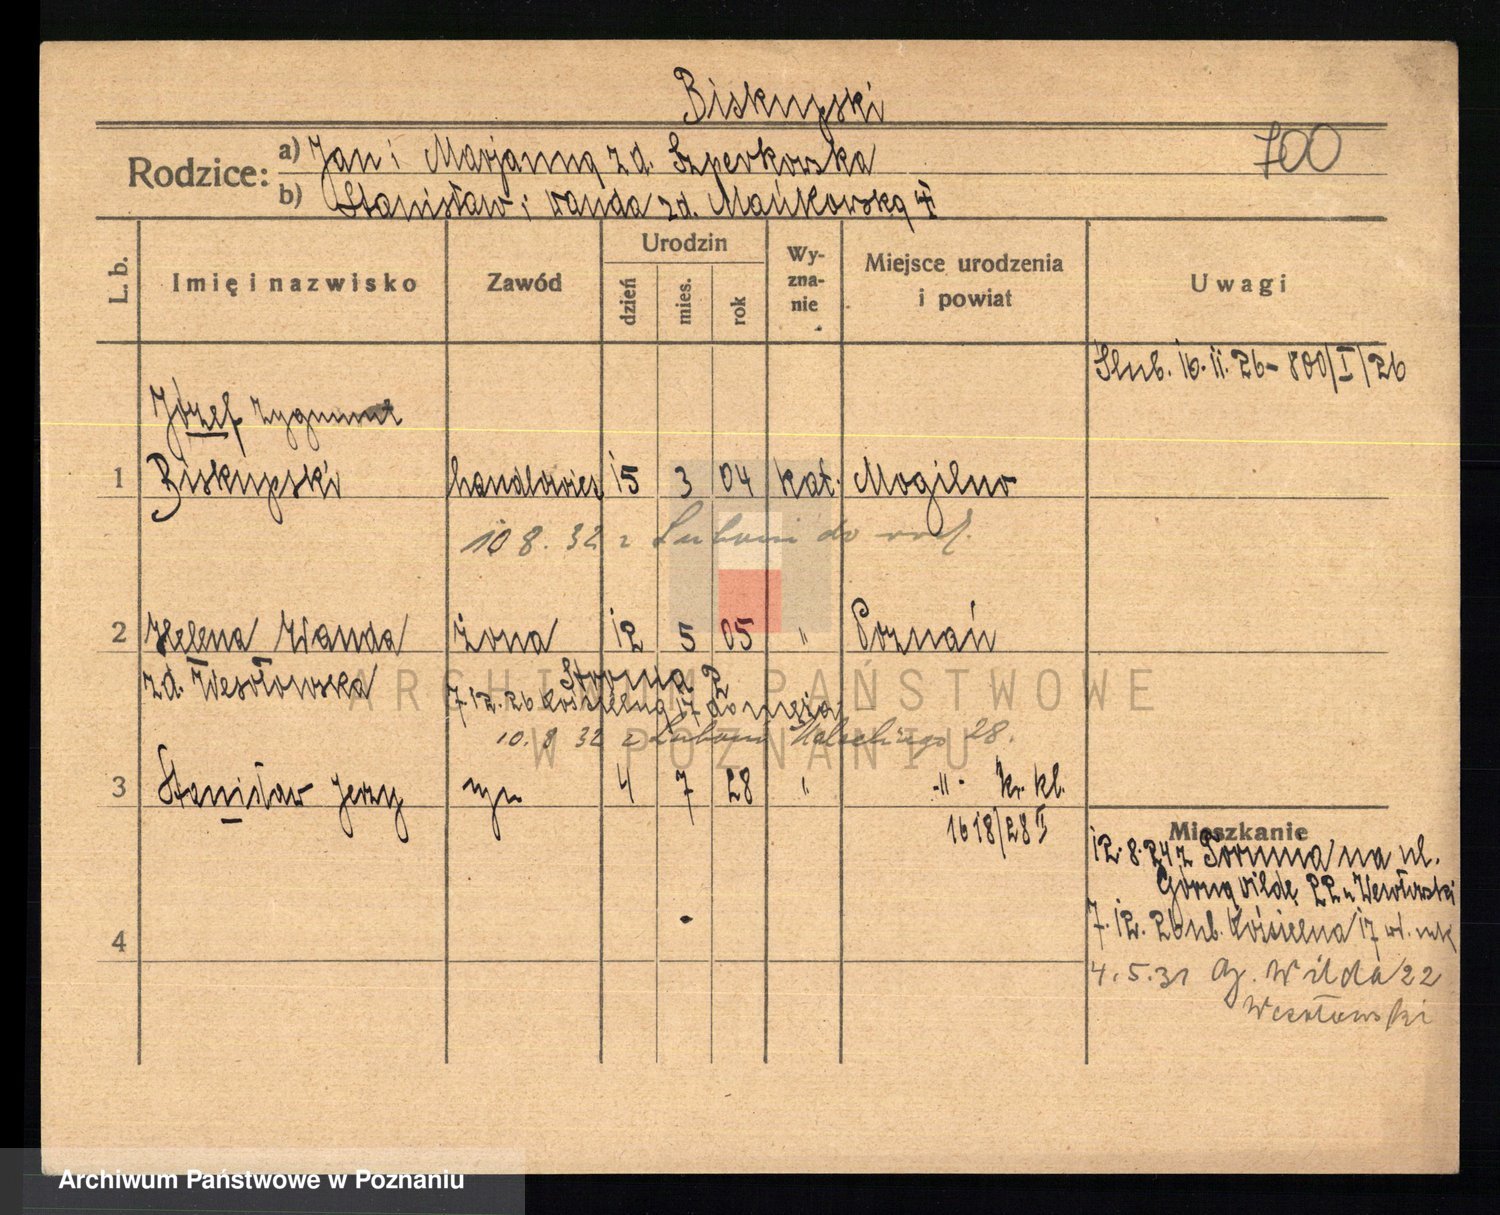 Biskupski
700
Rodzice:
a) Jan i Marjanna z d. Szperkowska
b) Stanisław i Wanda zd. Mańkowska
L. b.
Imię i nazwisko
Zawód
Urodzin
dzień
mies.
rok
Wy-
zna-
nie
Miejsce urodzenia
i powiat
Uwagi
Ślub. 16. 11. 26 - 800/I/26
Józef Zygmunt
1 Biskupski handlowiec 15 3 04 kat. Mogilno
10 8. 32 z Lubonia do
2 Helena Wanda żona 12 5 05 " Poznań
zd. Wesołowska
7.12.26 Kościelna 17 do męża
10. 8 32 z Lubonia 28.
3 Stanisław Jerzy syn 4 7 28 " -"- kr. kl.
1618/28 I
Mieszkanie
12. 8. 24 z Torunia na ul.
Górną Wildę 22 u Wesołowski
7. 12. 26 ul. Kościelna 17
4. 5. 31 G. Wilda 22
Wesołowski
4
ARCHIWUM PAŃSTWOWE
W POZNANIU
Archiwum Państwowe w Poznaniu